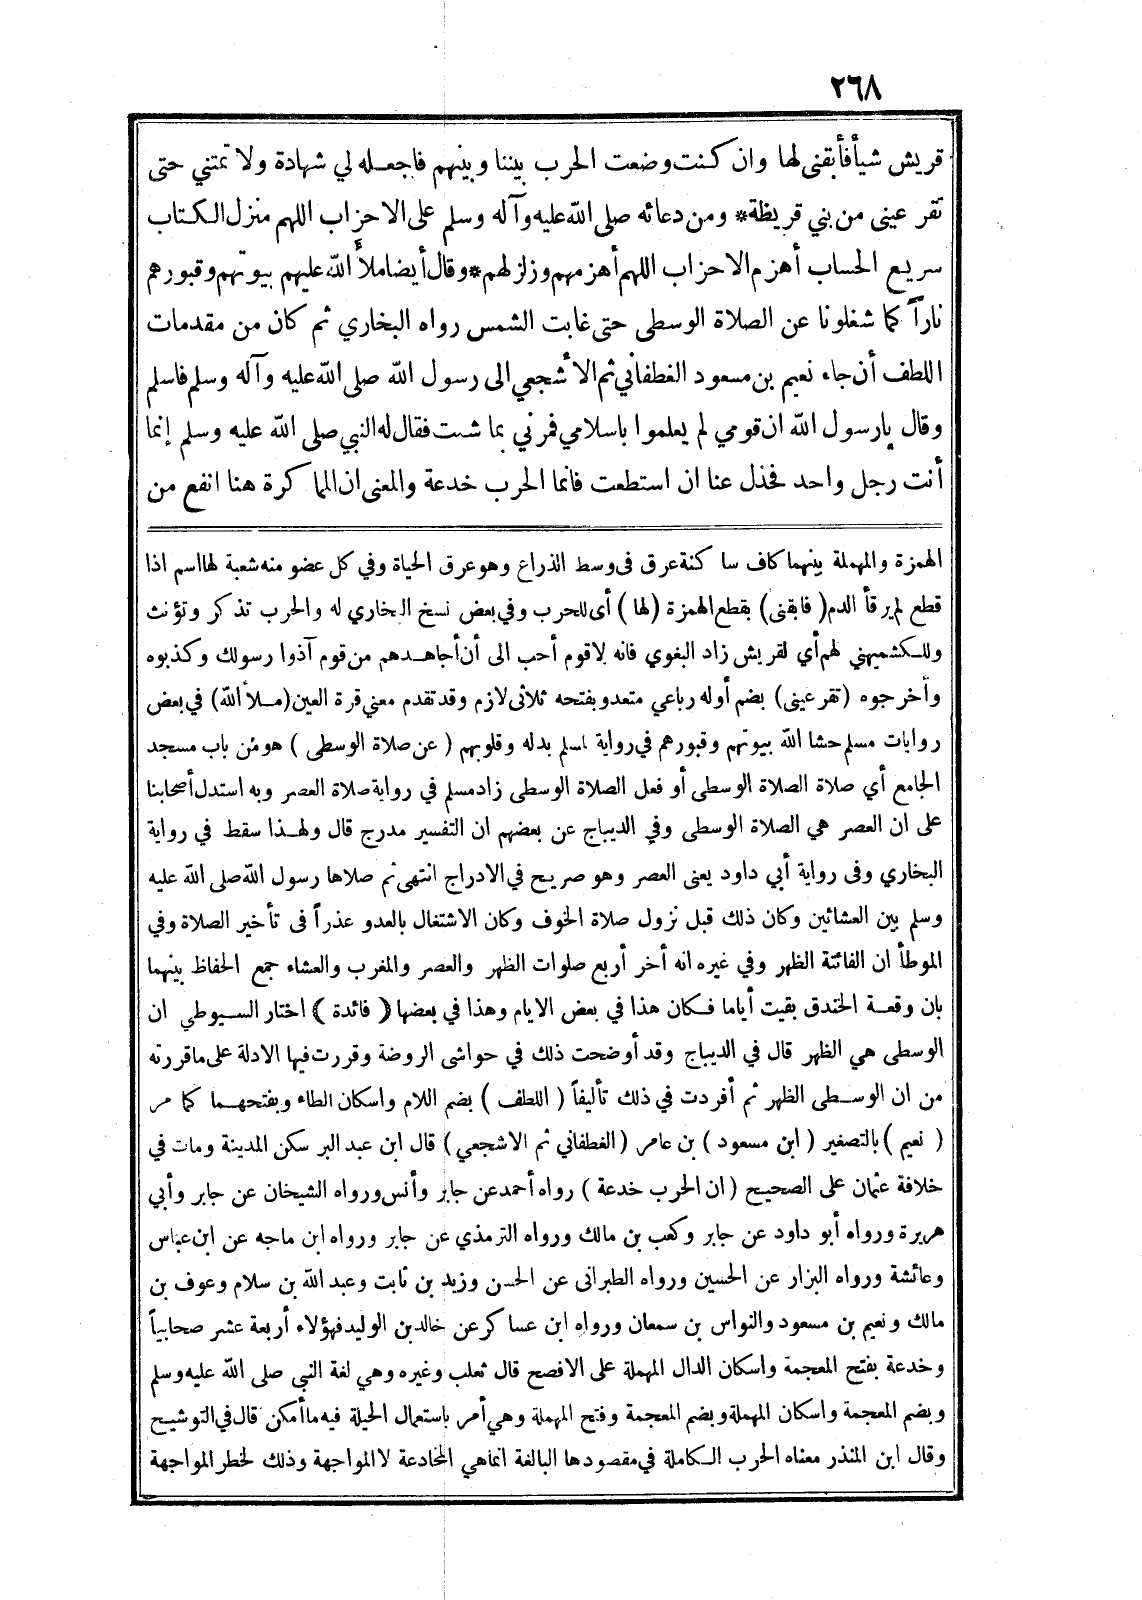 ٢٦٨
قريش شيأ فأبقني لها وان كنت وضعت الحرب بيننا وبينهم فاجعله لي شهادة ولا تمتني حتى
تقر عينى من بني قريظة* ومن دعائه صلى الله عليه وآله وسلم على الاحزاب اللهم منزل الكتاب
سريع الحساب أهزم الاحزاب اللهم أهزمهم وزلزلهم* وقال أيضا ملأ الله عليهم بيوتهم وقبورهم
ناراً كما شغلونا عن الصلاة الوسطى حتى غابت الشمس رواه البخاري ثم كان من مقدمات
اللطف أن جاء نعيم بن مسعود الغطفاني ثم الأشجعي الى رسول الله صلى الله عليه وآله وسلم فاسلم
وقال يارسول الله ان قومي لم يعلموا باسلامي فمرني بما شئت فقال له النبي صلى الله عليه وسلم إنما
أنت رجل واحد فخذل عنا ان استطعت فانما الحرب خدعة والمعنى ان المماكرة هنا انفع من
الهمزة والمهملة بينهما كاف ساكنة عرق فى وسط الذراع وهو عرق الحياة وفي كل عضو منه شعبة لها اسم اذا
قطع لم يرقأ الدم (فابقنى) بقطع الهمزة (لها) أى للحرب وفي بعض نسخ البخاري له والحرب تذكر وتؤنث
وللكشميهني لهم أي لقريش زاد البغوي فانه لا قوم أحب الى أن أجاهدهم من قوم آذوا رسولك وكذبوه
وأخرجوه (تقر عينى) بضم أوله رباعي متعد وبفتحه ثلاثى لازم وقد تقدم معني قرة العين (ملأ الله) في بعض
روايات مسلم حشا الله بيوتهم وقبورهم في رواية لمسلم بدله وقلوبهم (عن صلاة الوسطى) هو من باب مسجد
الجامع أي صلاة الصلاة الوسطى أو فعل الصلاة الوسطى زاد مسلم في رواية صلاة العصر وبه استدل أصحابنا
على ان العصر هي الصلاة الوسطى وفي الديباج عن بعضهم ان التفسير مدرج قال ولهذا سقط في رواية
البخاري وفى رواية أبي داود يعنى العصر وهو صريح في الادراج انتهى ثم صلاها رسول الله صلى الله عليه
وسلم بين العشائين وكان ذلك قبل نزول صلاة الخوف وكان الاشتغال بالعدو عذراً فى تأخير الصلاة وفي
الموطأ ان الفائتة الظهر وفي غيره انه أخر أربع صلوات الظهر والعصر والمغرب والعشاء جمع الحفاظ بينهما
بان وقعة الخندق بقيت أياما فكان هذا في بعض الايام وهذا في بعضها (فائدة) اختار السيوطي ان
الوسطى هي الظهر قال في الديباج وقد أوضحت ذلك في حواشى الروضة وقررت فيها الادلة على ما قررته
من ان الوسطى الظهر ثم أفردت في ذلك تأليفاً (اللطف) بضم اللام واسكان الطاء وبفتحهما كما مر
(نعيم) بالتصغير (ابن مسعود) بن عامر (الغطفاني ثم الاشجعي) قال ابن عبد البر سكن المدينة ومات في
خلافة عثمان على الصحيح (ان الحرب خدعة) رواه أحمد عن جابر وأنس ورواه الشيخان عن جابر وأبي
هريرة ورواه أبو داود عن جابر وكعب بن مالك ورواه الترمذي عن جابر ورواه ابن ماجه عن ابن عباس
وعائشة ورواه البزار عن الحسين ورواه الطبرانى عن الحسن وزيد بن ثابت وعبد الله بن سلام وعوف بن
مالك ونعيم بن مسعود والنواس بن سمعان ورواه ابن عساكر عن خالد بن الوليد فهؤلاء أربعة عشر صحابياً
وخدعة بفتح المعجمة واسكان الدال المهملة على الافصح قال ثعلب وغيره وهي لغة النبي صلى الله عليه وسلم
وبضم المعجمة واسكان المهملة وبضم المعجمة وفتح المهملة وهي أمر باستعمال الحيلة فيه ما أمكن قال في التوشيح
وقال ابن المنذر معناه الحرب الكاملة في مقصودها البالغة انما هي المخادعة لا المواجهة وذلك لخطر المواجهة